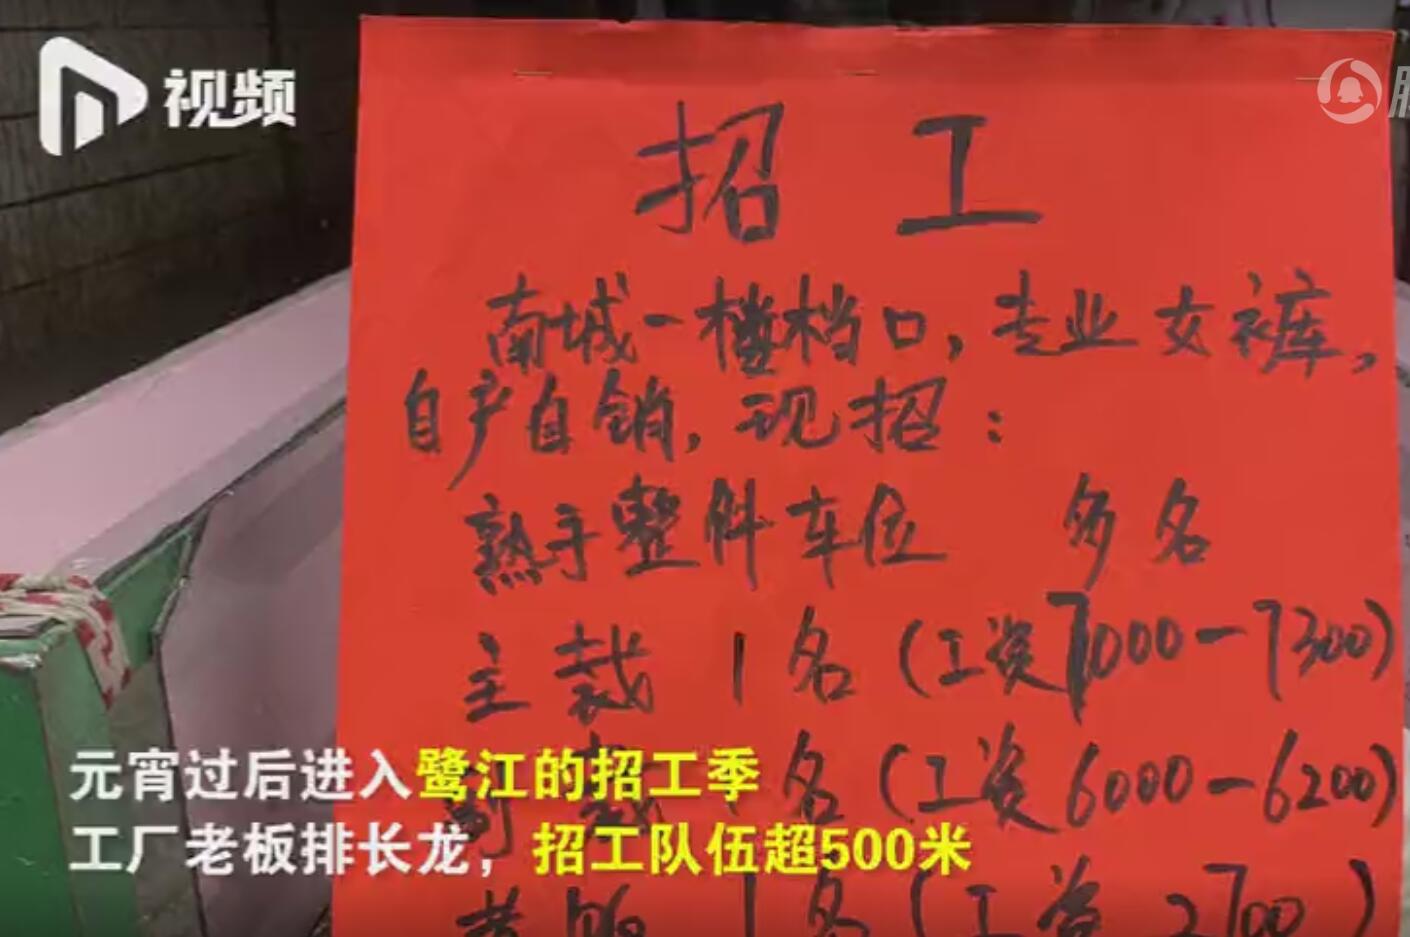 视频
招工
南城一楼档口，专业女裤，
自产自销，现招：
熟手整件车位 多名
主裁 1名（工资7000-7300）
副裁 1名（工资6000-6200）
1名（工资2700）
元宵过后进入鹭江的招工季
工厂老板排长龙，招工队伍超500米